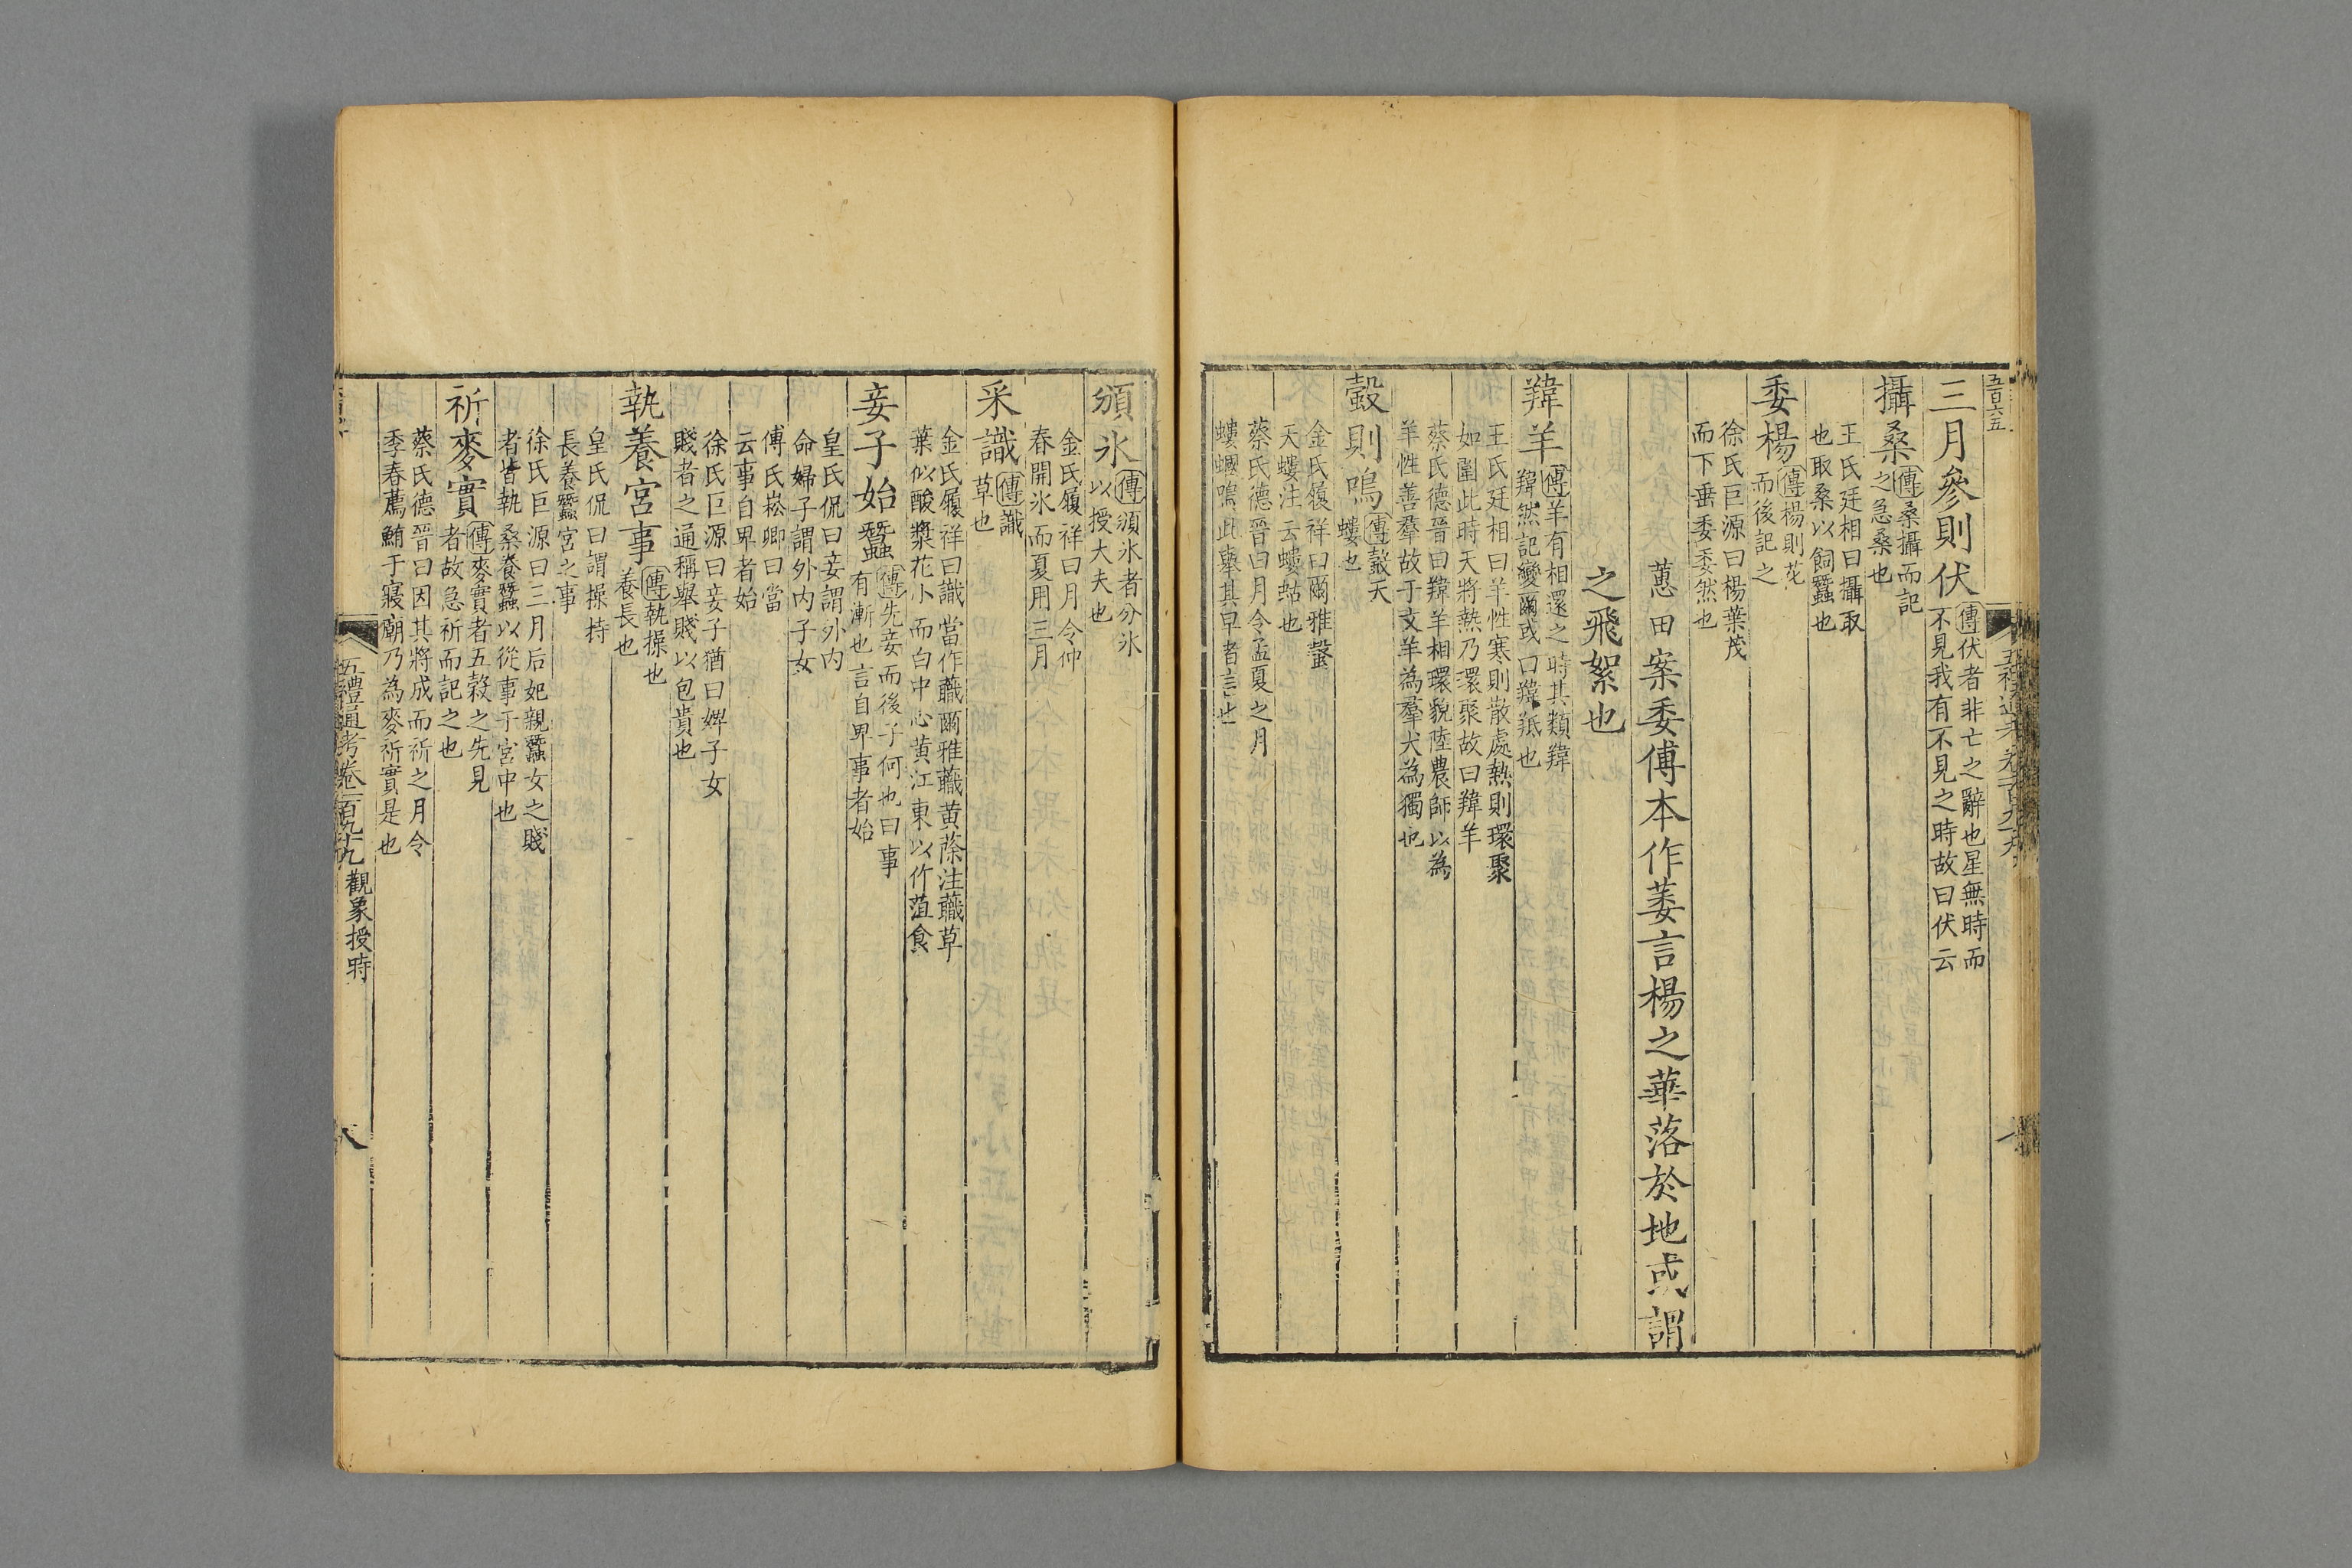 五百六五
三月參則伏傳伏者非亡之辭也星無時而
不見我有不見之時故曰伏云
攝桑傳桑攝而記
之急桑也
王氏廷相曰攝取
也取桑以飼蠶也
委楊傳楊則花
而後記之
徐氏巨源曰楊葉茂
而下垂委委然也
蕙田案委傅本作萎言楊之華落於地或謂
之飛絮也
羵羊傳羊有相還之時其類羵
羵然記變爾或曰羵羝也
王氏廷相曰羊性寒則散處熱則環聚
如圍此時天將熱乃環聚故曰羵羊
蔡氏德晉曰羵羊相環貌陸農師以為
羊性善羣故于文羊為羣犬為獨也
螜則鳴傳螜天
螻也
金氏履祥曰爾雅螜
天螻注云螻蛄也
蔡氏德晉曰月令孟夏之月
螻蟈鳴此舉其早者言也
頒氷傳頒氷者分氷
以授大夫也
金氏履祥曰月令仲
春開氷而夏用三月
采識傳識
草也
金氏履祥曰識當作蘵爾雅蘵黄蒢注蘵草
葉似酸漿花小而白中心黄江東以作葅食
妾子始蠶傳先妾而後子何也曰事
有漸也言自卑事者始
皇氏侃曰妾謂外内
命婦子謂外内子女
傅氏崧卿曰當
云事自卑者始
徐氏巨源曰妾子猶曰婢子女
賤者之通稱舉賤以包貴也
執養宮事傳執操也
養長也
皇氏侃曰謂操持
長養蠶宮之事
徐氏巨源曰三月后妃親蠶女之賤
者皆執桑養蠶以從事于宮中也
祈麥實傳麥實者五榖之先見
者故急祈而記之也
蔡氏德晉曰因其將成而祈之月令
季春薦鮪于寢廟乃為麥祈實是也
五禮通考卷二百九十九 觀象授時
八